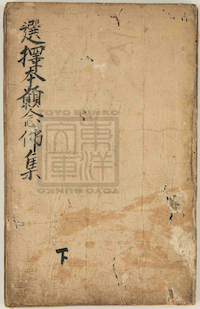 選擇本願念佛集
下
東洋文庫
TOYO BUNKO
TOYO BUNKO